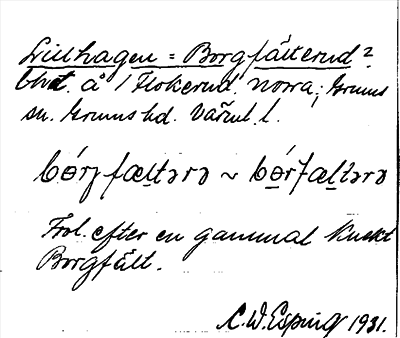 Lillhagen = Borgfälterud?
bhot. å 1 Flokerud norra; Grums
sn. Grums hd. Värml. l.
bórjfæltərə ~ bórfæltərə
Trol. efter en gammal knekt
Borgfält.
C.W. Esping 1931.